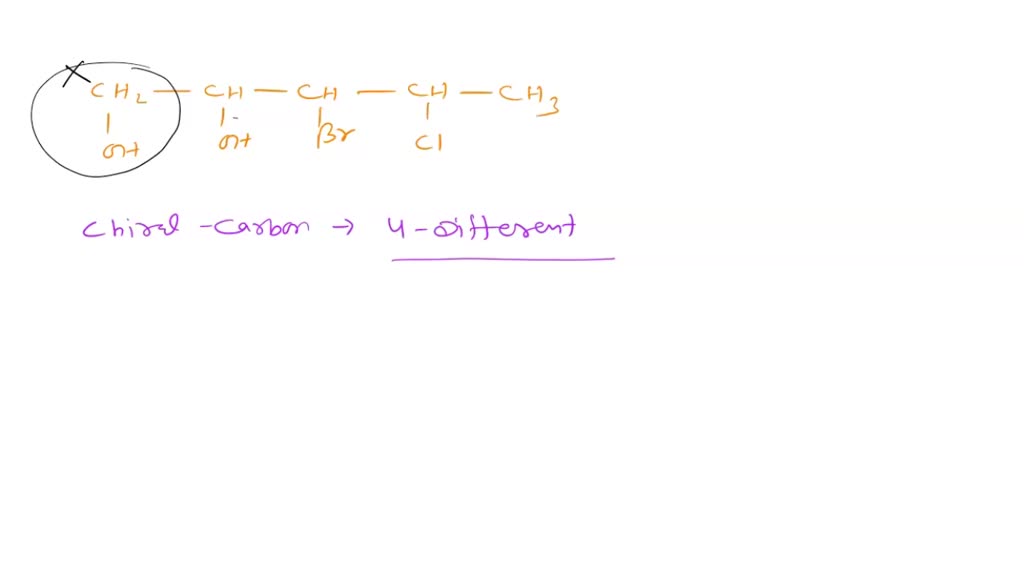 CH2 — CH — CH — CH — CH3
OH OH Br Cl
Chiral - Carbon → 4 - Different